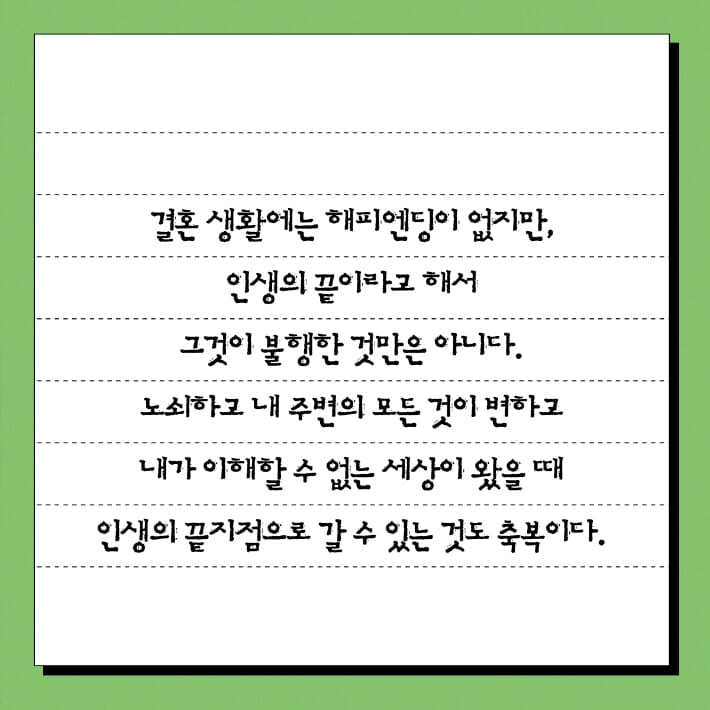 결혼 생활에는 해피엔딩이 없지만,
인생의 끝이라고 해서
그것이 불행한 것만은 아니다.
노쇠하고 내 주변의 모든 것이 변하고
내가 이해할 수 없는 세상이 왔을 때
인생의 끝지점으로 갈 수 있는 것도 축복이다.